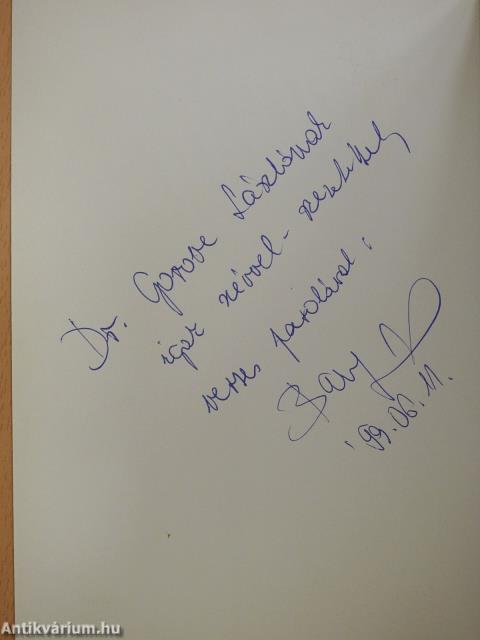 Dr. Gorove Lászlónak
igaz szívvel - szeretettel
verses parolával:
'99.06.11.
Antikvárium.hu